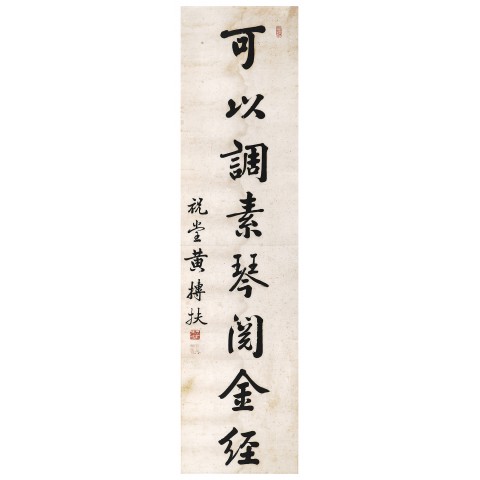 可以調素琴閱金經
祝堂黃摶扶